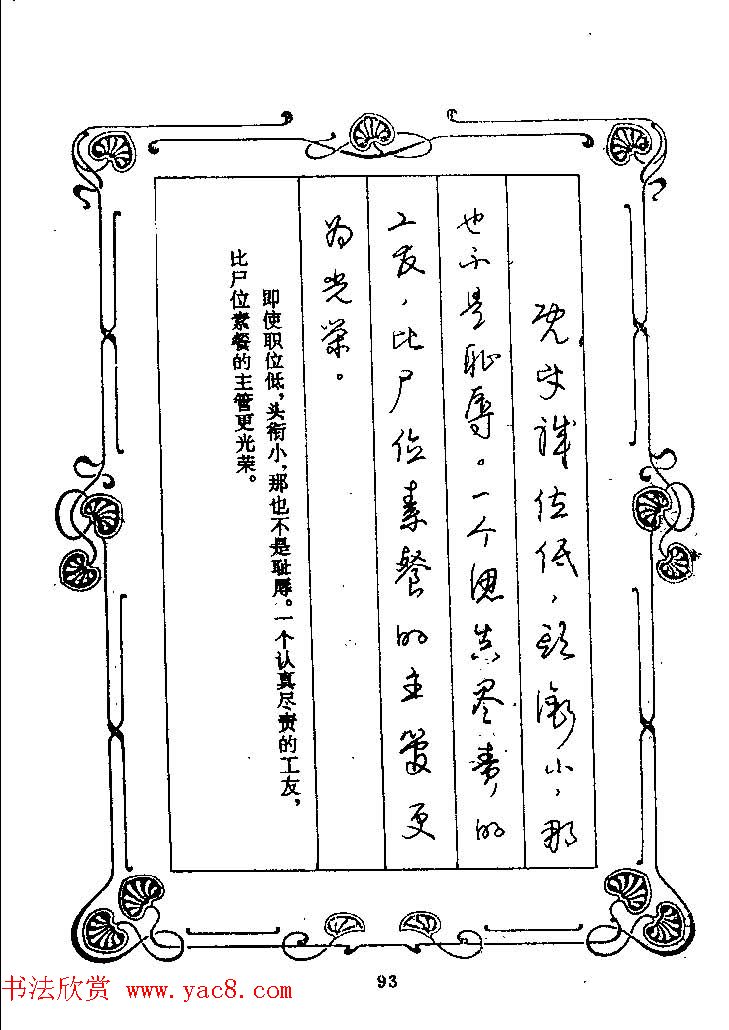 既使職位低，頭銜小，那
也不是耻辱。一个認真尽責，的
工友，比尸位素餐的主管更
为光荣。
即使职位低，头衔小，那也不是耻辱。一个认真尽责的工友，
比尸位素餐的主管更光荣。
93
书法欣赏 www.yac8.com